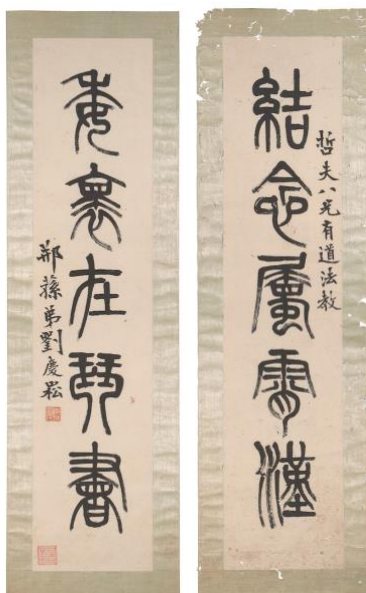 結念屬霄漢
哲夫八兄有道法教
委褱在琴書
郱蓀弟劉慶崧